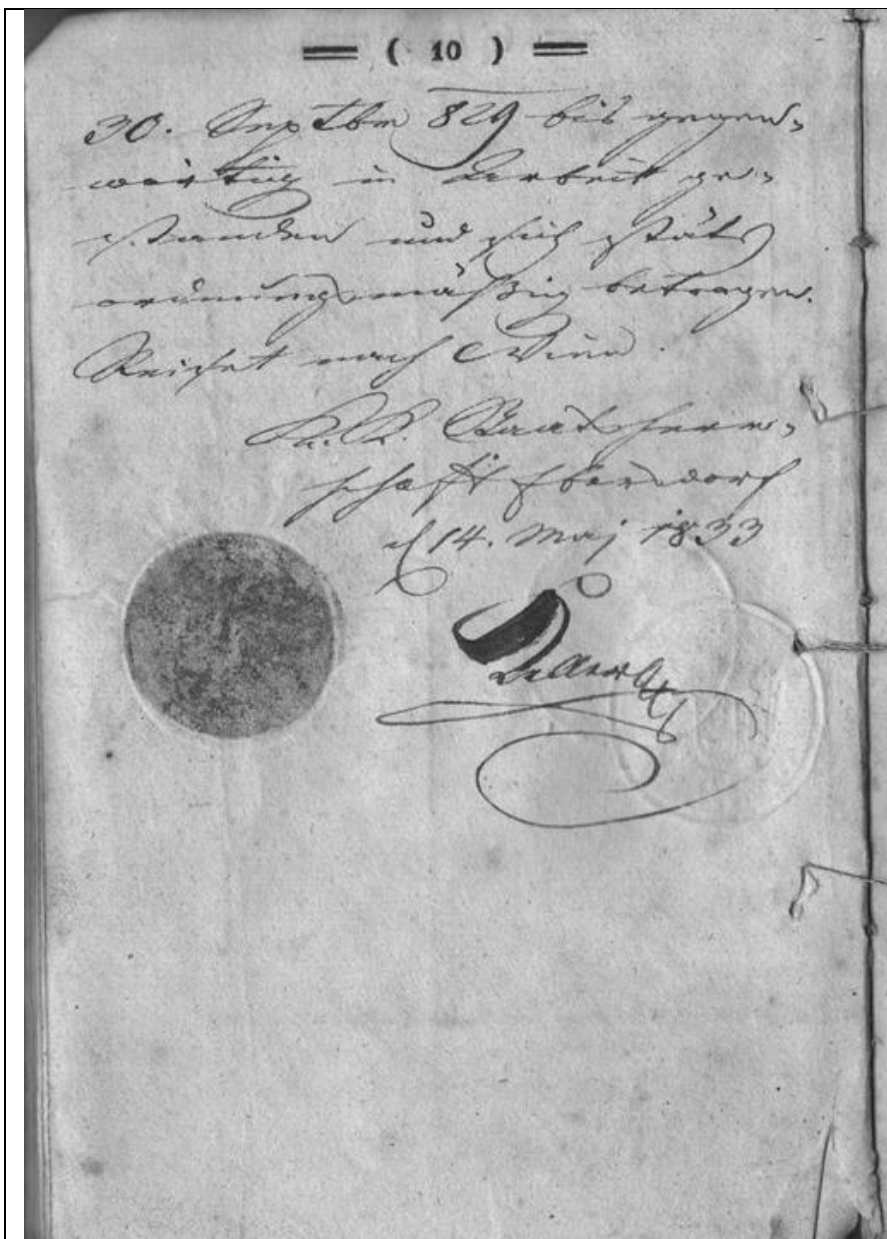 ( 10 )
30. Septbr 829 bis gegen„
wärtig in Arbeit ge„
standen und sich stäts
ordnungsmäßig betragen.
Reiset nach Wien.
K. K. Staatsherr„
schaft Ebersdorf
d 14. Maj 1833